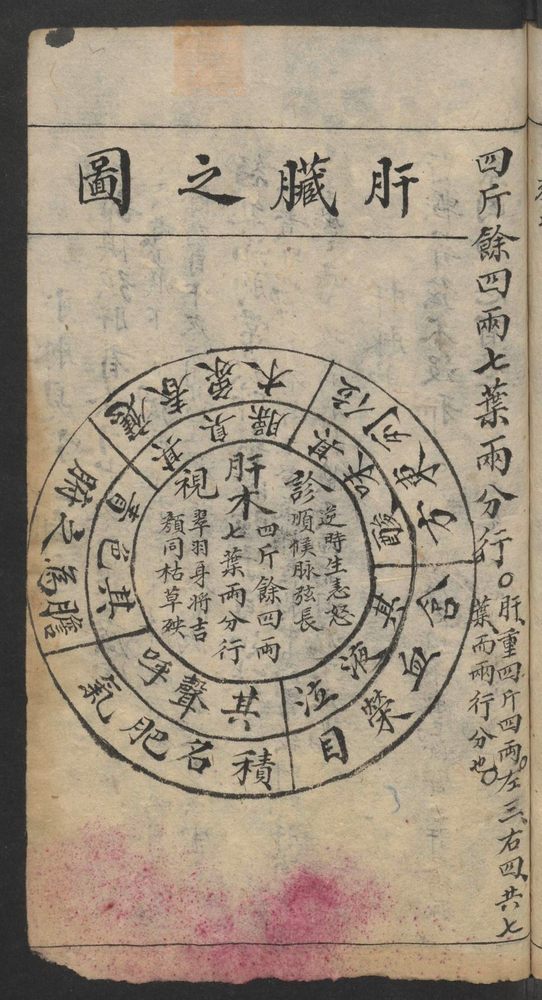 四斤餘四兩七葉兩分行。
肝重四斤四兩。左三、右四、共七
葉而兩行分也。
肝臟之圖
診
逆時生恚怒
順候脉弦長
肝木
四斤餘四兩
七葉兩分行
視
翠羽身將吉
頹同枯草殃
其臭臊
其味酸
其液泣
其聲呼
其色青
應春象木
位列東方
含血榮目
積名肥氣
膽為之腑